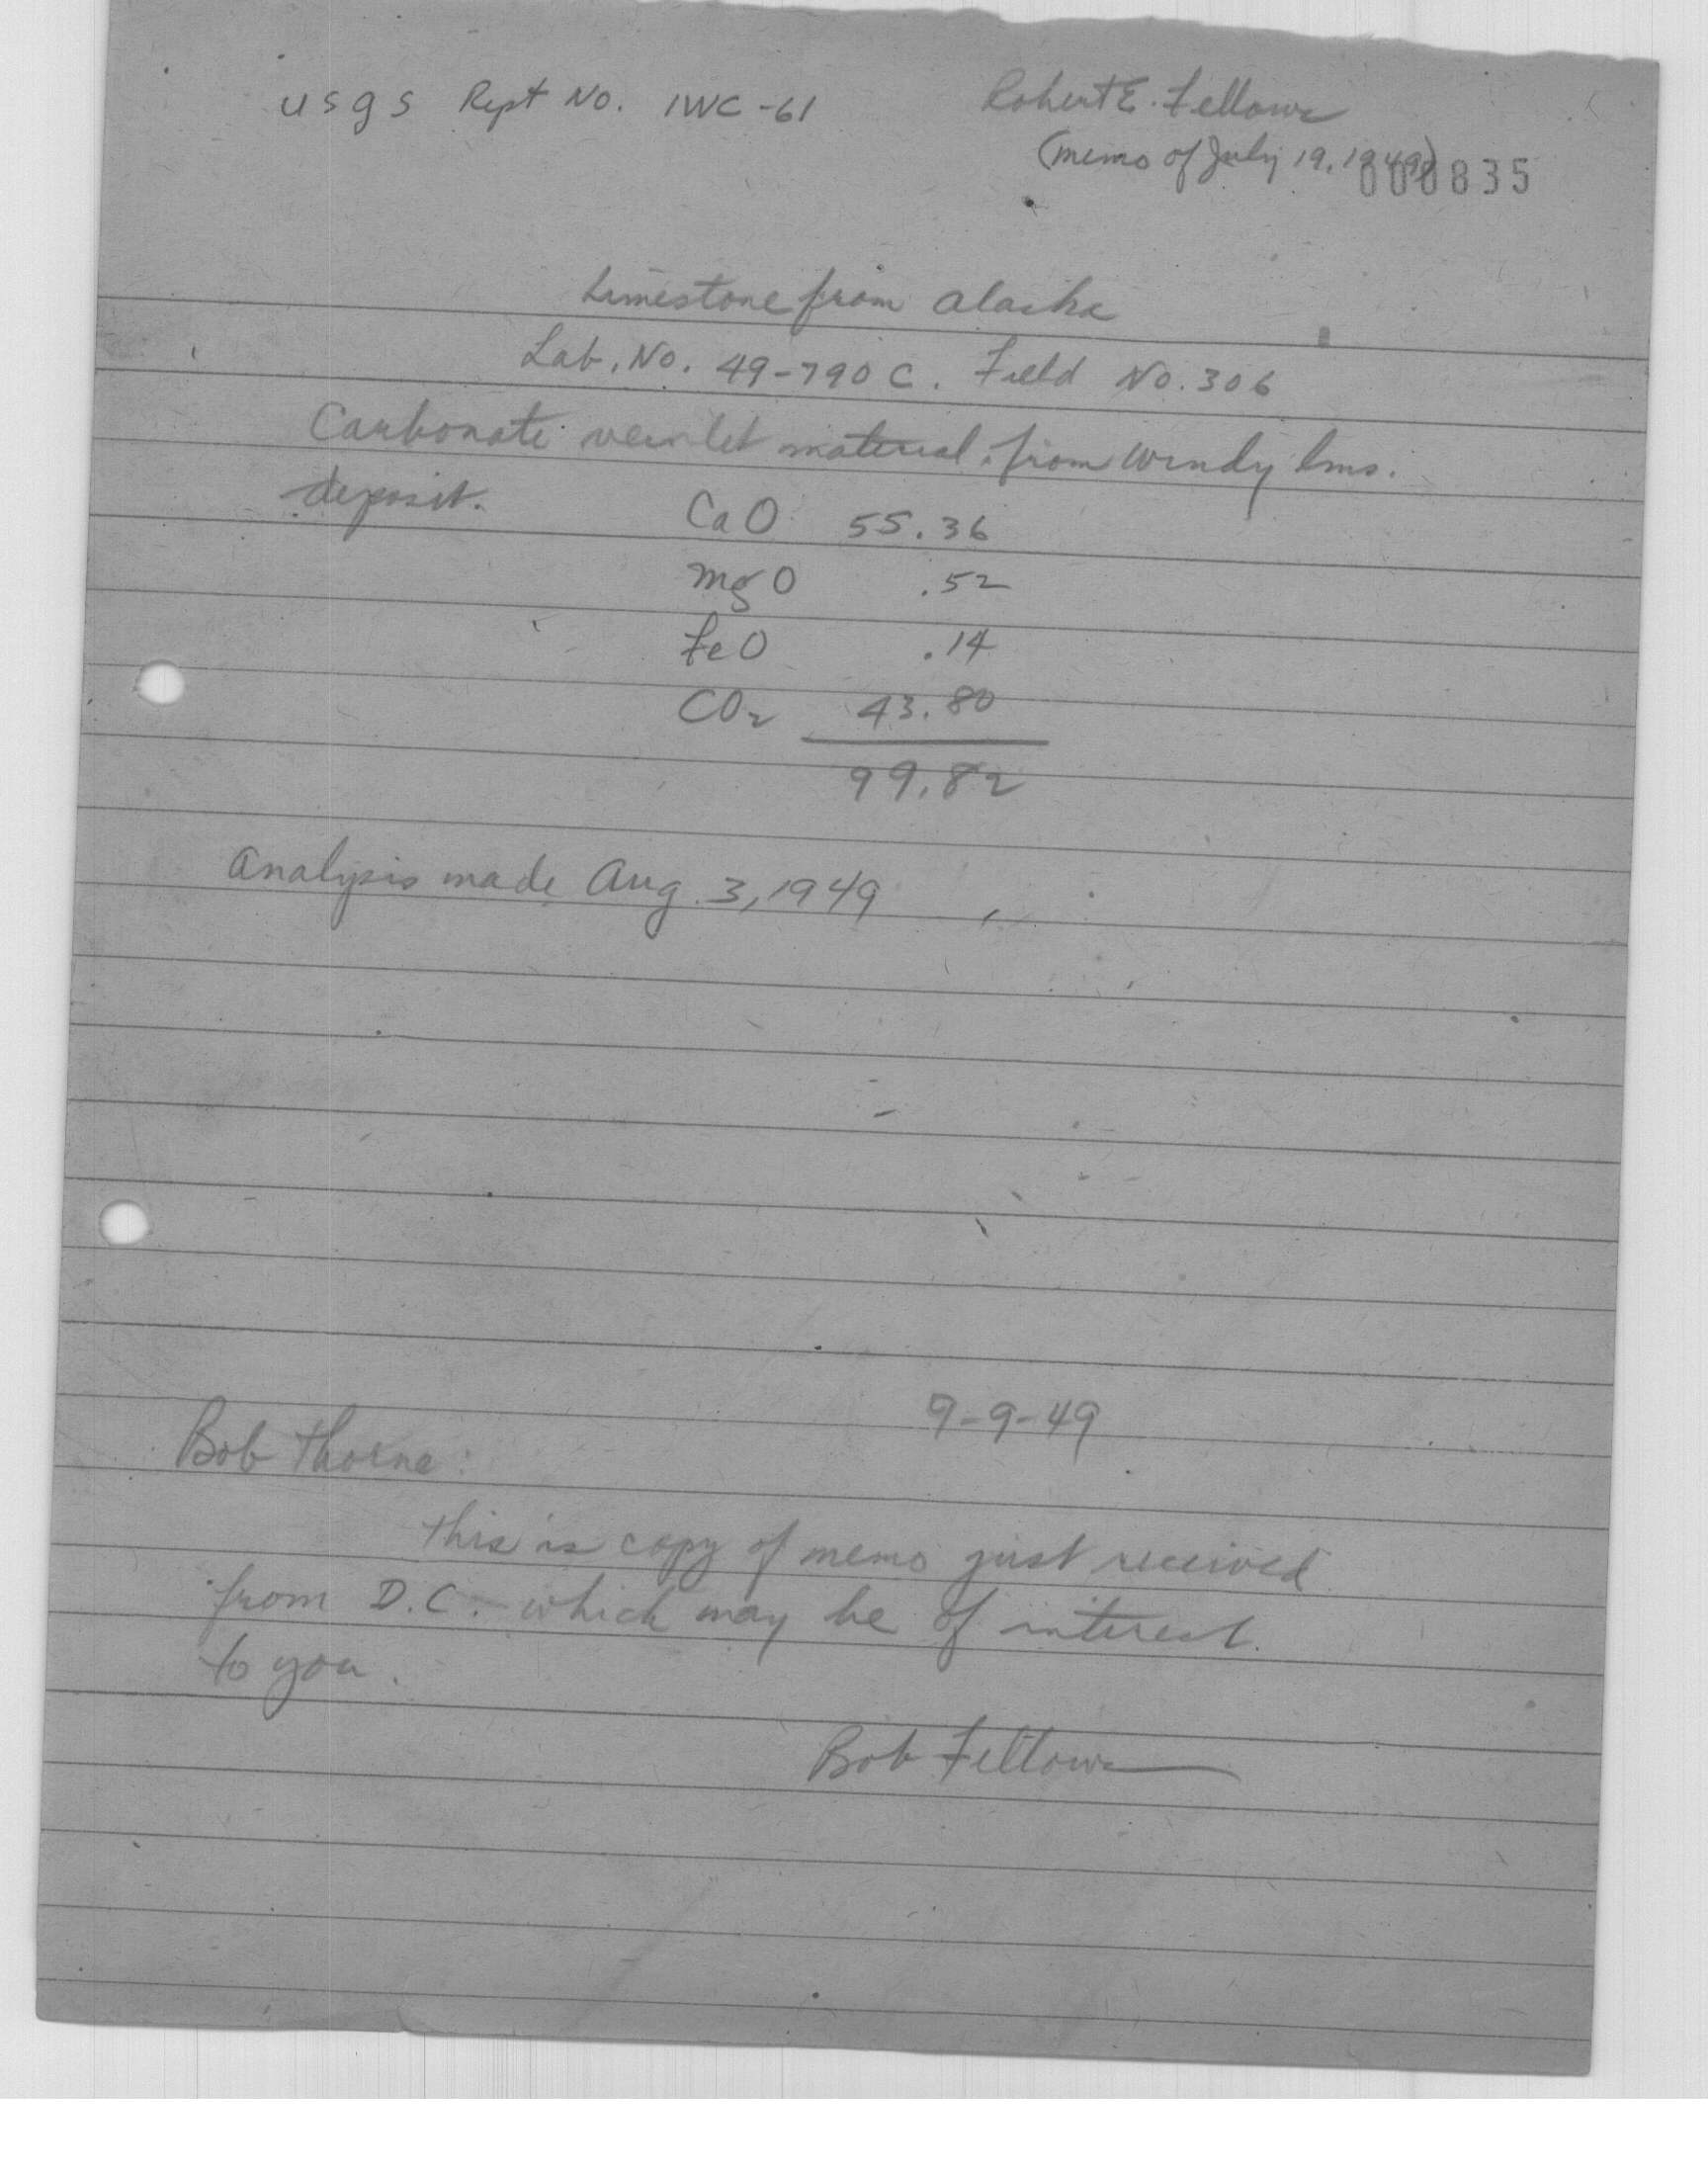 USGS Rept No. IWC-61
Robert E. Fellows
(memo of July 19, 1949)
000835
Limestone from Alaska
Lab. No. 49-790 C. Field No. 306
Carbonate veinlet material from Windy lms.
deposit.
CaO 55.36
MgO .52
FeO .14
CO2 43.80
99.82
Analysis made Aug. 3, 1949
9-9-49
Bob Thorne:
This is copy of memo just received
from D.C. which may be of interest
to you.
Bob Fellows